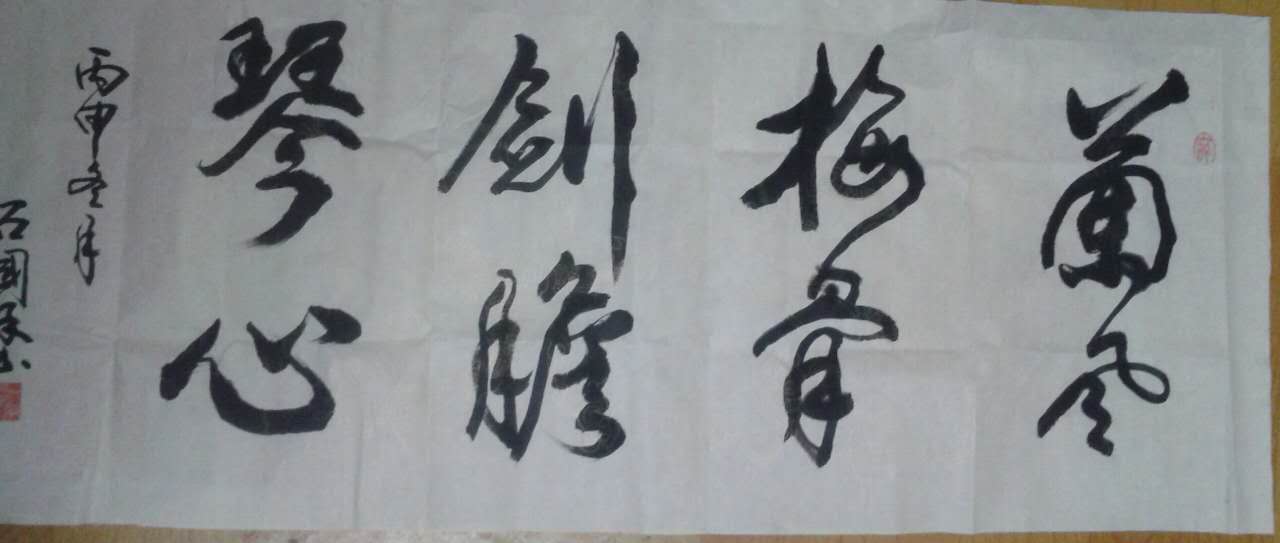 蘭风
梅骨
劍膽
琴心
丙申冬月
石國